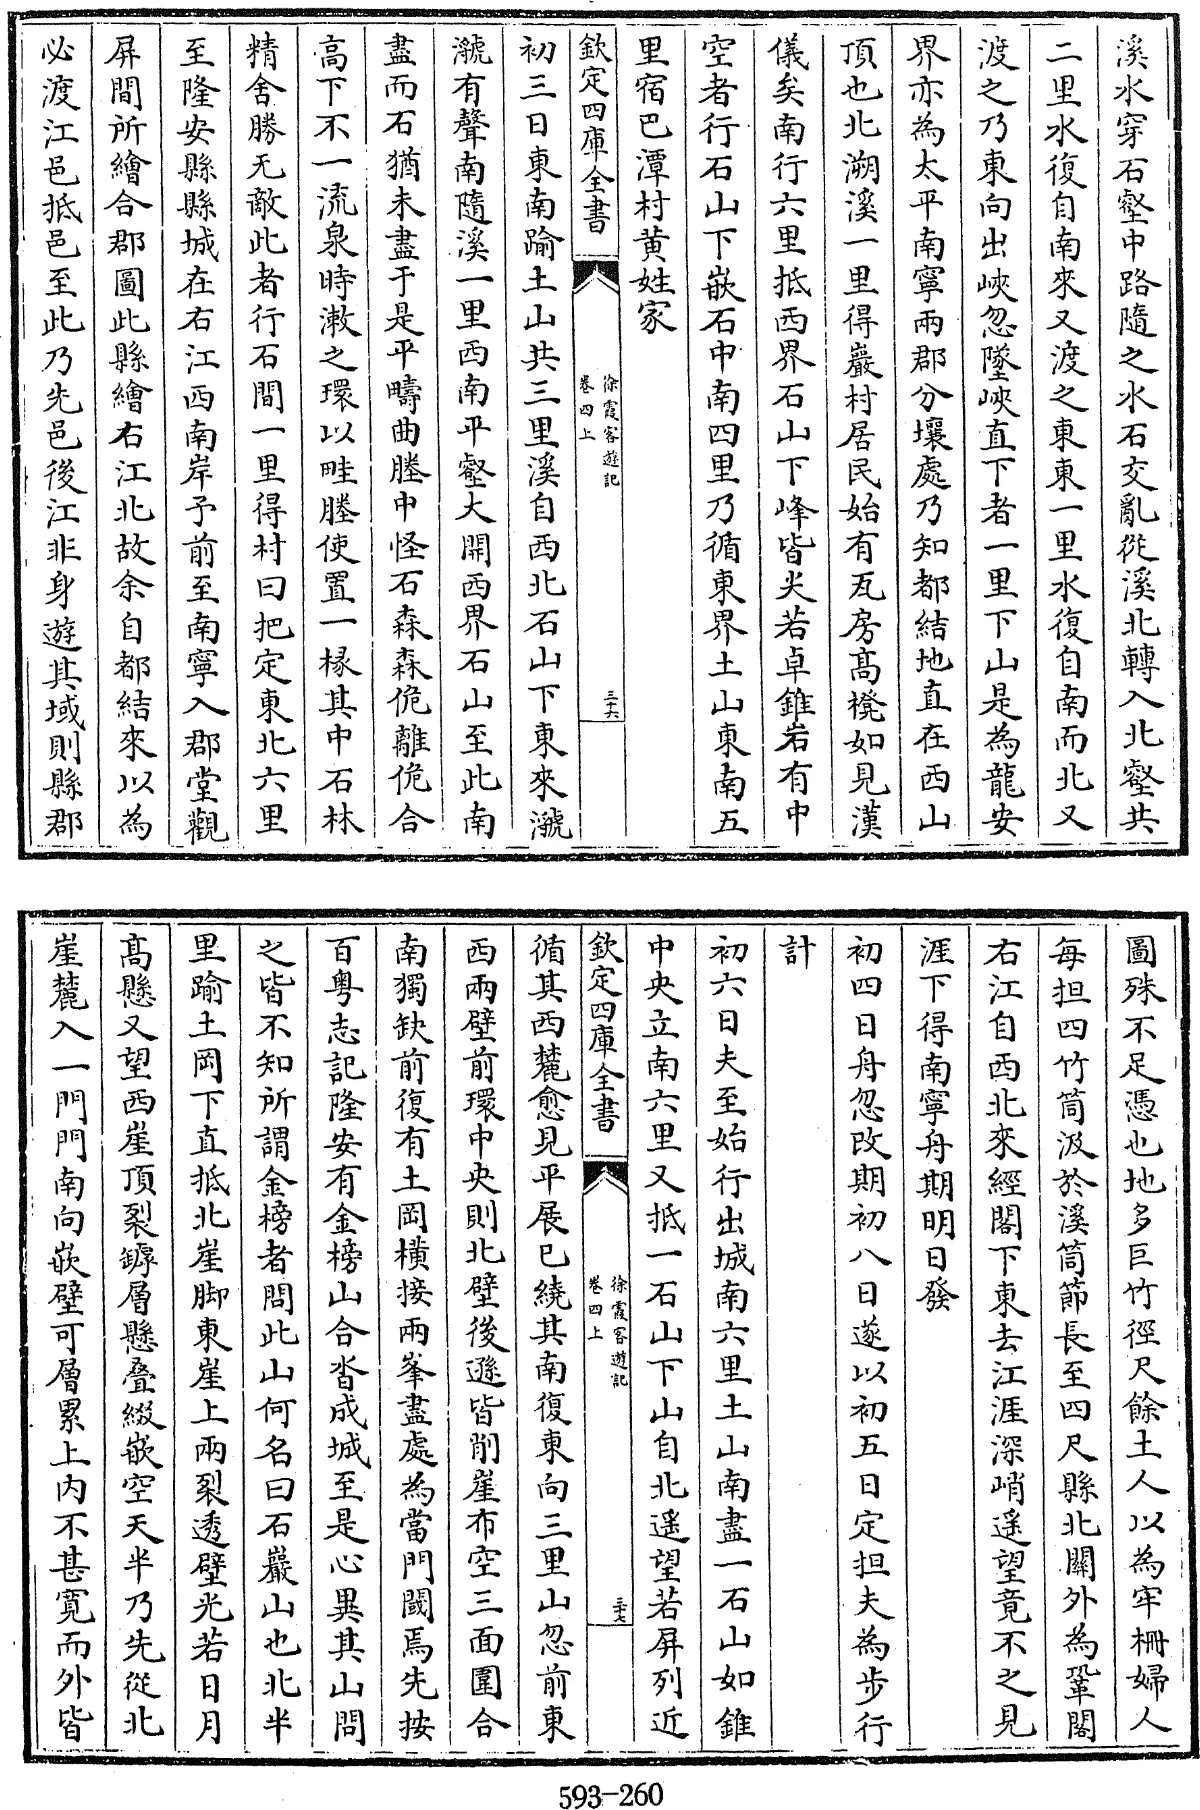 溪水穿石壑中路隨之水石交亂從溪北轉入北壑共
二里水復自南來又渡之東東一里水復自南而北又
渡之乃東向出峽忽墜峽直下者一里下山是為龍安
界亦為太平南寧兩郡分壤處乃知都結地直在西山
頂也北溯溪一里得巖村居民始有瓦房高櫈如見漢
儀矣南行六里抵西界石山下峰皆尖若卓錐岩有中
空者行石山下嵌石中南四里乃循東界土山東南五
里宿巴潭村黄姓家
欽定四庫全書
徐霞客遊記
卷四上
三十六
初三日東南踰土山共三里溪自西北石山下東來漉
漉有聲南隨溪一里西南平壑大開西界石山至此南
盡而石猶未盡于是平疇曲塍中怪石森森佹離佹合
高下不一流泉時漱之環以畦塍使置一椽其中石林
精舍勝无敵此者行石間一里得村曰把定東北六里
至隆安縣縣城在右江西南岸予前至南寧入郡堂觀
屏間所繪合郡圖此縣繪右江北故余自都結來以為
必渡江邑抵邑至此乃先邑後江非身遊其域則縣郡
圖殊不足憑也地多巨竹徑尺餘土人以為牢柵婦人
每担四竹筒汲於溪筒節長至四尺縣北關外為鞏閣
右江自西北來經閣下東去江涯深峭遥望竟不之見
涯下得南寧舟期明日發
初四日舟忽改期初八日遂以初五日定担夫為步行
計
初六日夫至始行出城南六里土山南盡一石山如錐
中央立南六里又抵一石山下山自北遥望若屏列近
欽定四庫全書
徐霞客遊記
卷四上
三十七
循其西麓愈見平展已繞其南復東向三里山忽前東
西兩壁前環中央則北壁後遜皆削崖布空三面圍合
南獨缺前復有土岡横接兩峯盡處為當門閾焉先按
百粤志記隆安有金榜山合沓成城至是心異其山問
之皆不知所謂金榜者問此山何名曰石巖山也北半
里踰土岡下直抵北崖脚東崖上兩裂透壁光若日月
高懸又望西崖頂裂罅層懸叠綴嵌空天半乃先從北
崖麓入一門門南向嵌壁可層累上内不甚寛而外皆
593-260